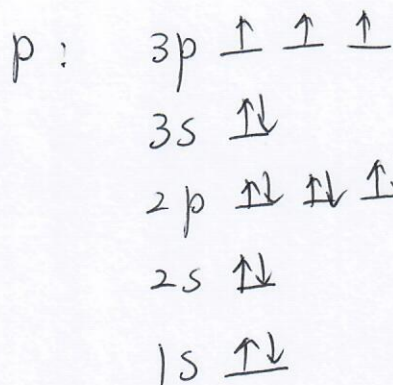 p: 3p ↑ ↑ ↑
3s ↑↓
2p ↑↓ ↑↓ ↑↓
2s ↑↓
1s ↑↓